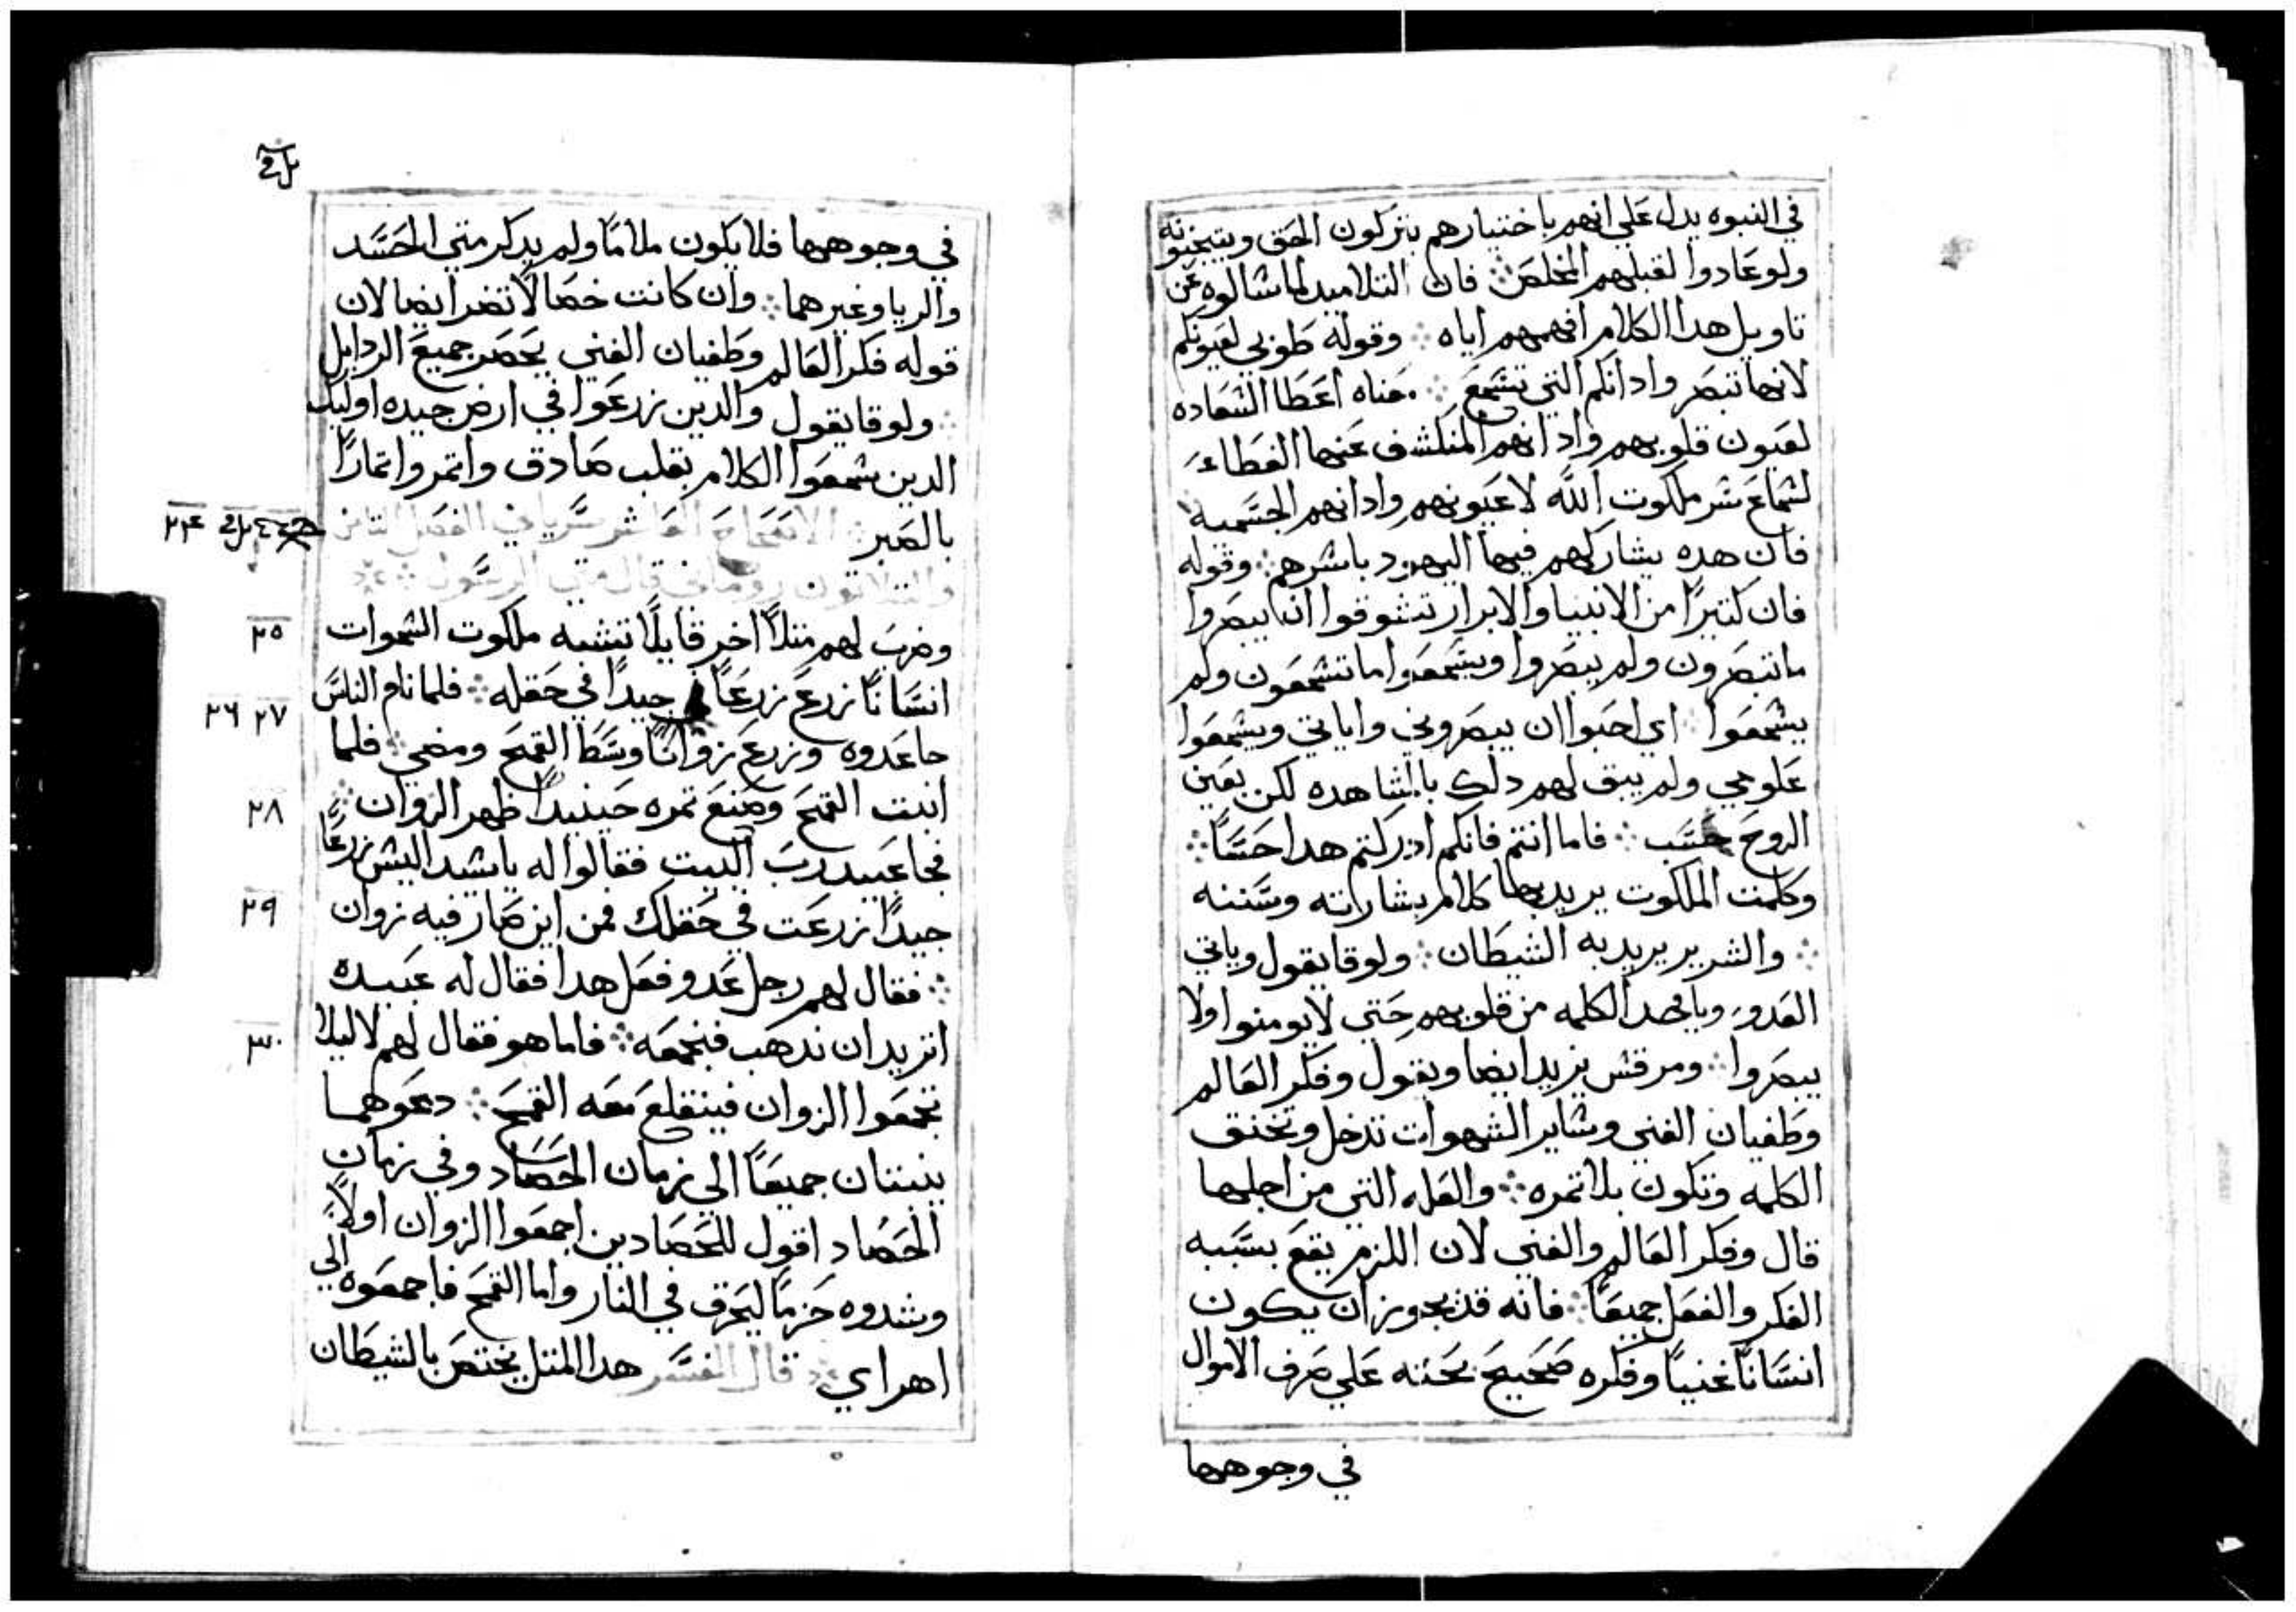 في النبوه يدل علي انهم باختيارهم يتركون الحق ويتجنبونه
ولو عادوا لقبلهم المخلص ܀ فان التلاميد لما سالوه عن
تاويل هدا الكلام افهمهم اياه ܀ وقوله طوبي لعيونكم
لانها تبصر وادانكم التي تسمع ܀ معناه اعطا السعاده
لعيون قلوبهم وادانهم المنكشف عنها الغطاء
لسماع سر ملكوت الله لا عيونهم وادانهم الجسميه
فان هده يشاركهم فيها اليهود باسرهم ܀ وقوله
فان كتيرًا من الانبيا والابرار تشوقوا ان يبصروا
ما تبصرون ولم يبصروا ويسمعوا ما تسمعون ولم
يسمعوا ܀ اي احبوا ان يبصروني واياتي ويسمعوا
علومي ولم يبق لهم دلك بالمشاهده لكن بعين
الروح حسب ܀ فاما انتم فانكم ادركتم هدا حسًا ܀
وكلمت الملكوت يريد بها كلام بشاراته وسننه
܀ والشرير يريد به الشيطان ܀ ولوقا يقول وياتي
العدو وياخد الكلمه من قلوبهم حتي لا يومنوا ولا
يبصروا ܀ ومرقس يزيد ايضا ويقول وفكر العالم
وطغيان الغني وساير الشهوات تدخل وتخنق
الكلمه وتكون بلا تمره ܀ والعله التي من اجلها
قال وفكر العالم والغني لان اللزم يقع بسببه
الفكر والفعل جميعًا ܀ فانه قد يجوز ان يكون
انسانًا غنيًا وفكره صحيح يحته علي صرف الاموال
في وجوهها
في وجوهها فلا يكون ملامًا ولم يدكر متي الحسد
والريا وغيرهما ܀ وان كانت خصالًا تضر ايضا لان
قوله فكر العالم وطغيان الغني يحصر جميع الردايل
܀ ولوقا يقول والدين زرعوا في ارض جيده اوليك
الدين سمعوا الكلام بقلب صادق واتمروا تمارًا
بالصبر ܀ الاصحاح العاشر سرياني الفصل التامن
والتلاتون روماني قال متي الرسول ܀
٢٤
٢٥
وضرب لهم متلًا اخر قايلًا تشبه ملكوت السموات
انسانًا زرع زرعًا جيدًا في حقله ܀ فلما نام الناس
٢٦ ٢٧
جا عدوه وزرع زوانًا وسط القمح ومضي ܀ فلما
انبت القمح وصنع تمره حينيدًا ظهر الزوان ܀
٢٨
فجا عبيد رب البيت فقالوا له يا سيد اليس زرعًا
جيدًا زرعت في حقلك فمن اين صار فيه زوان
٢٩
܀ فقال لهم رجل عدو فعل هدا فقال له عبيده
اتريد ان ندهب فنجمعه ܀ فاما هو فقال لهم لا ليلا
٣٠
تجمعوا الزوان فينقلع معه القمح ܀ دعوهما
ينبتان جميعًا الي زمان الحصاد وفي زمان
الحصاد اقول للحصادين اجمعوا الزوان اولًا
وشدوه حزمًا ليحرق في النار واما القمح فاجمعوه الي
اهراي ܀ قال المفسر هدا المتل يختص بالشيطان